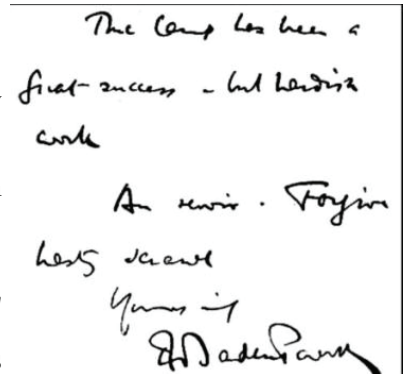 The Camp has been a
great success - but heavyish
work
Au revoir. Forgive
hasty scrawl
Yours
Baden Powell